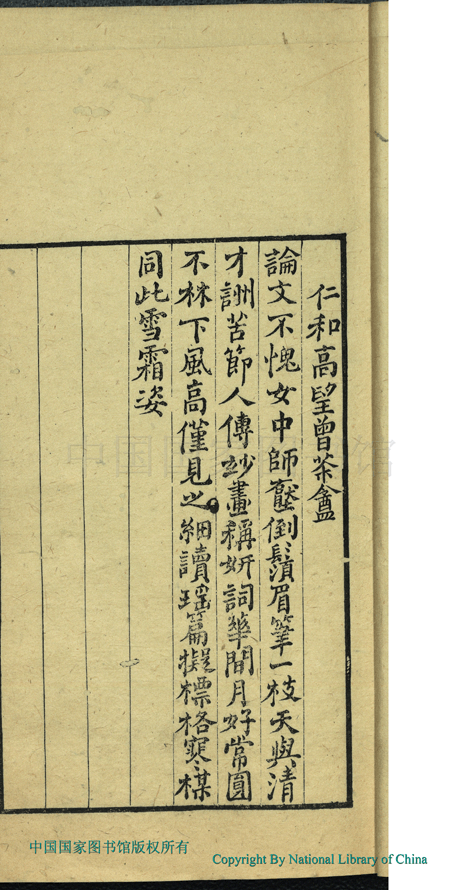 仁和高望曾茶盦
論文不愧女中師壓倒鬚眉筆一枝天與清
才詶苦節人傳玅畫稱妍詞華間月好常圓
不林下風高僅見之細讀瑤篇擬標格寒楳
同此雪霜姿
中国国家图书馆版权所有
Copyright By National Library of China